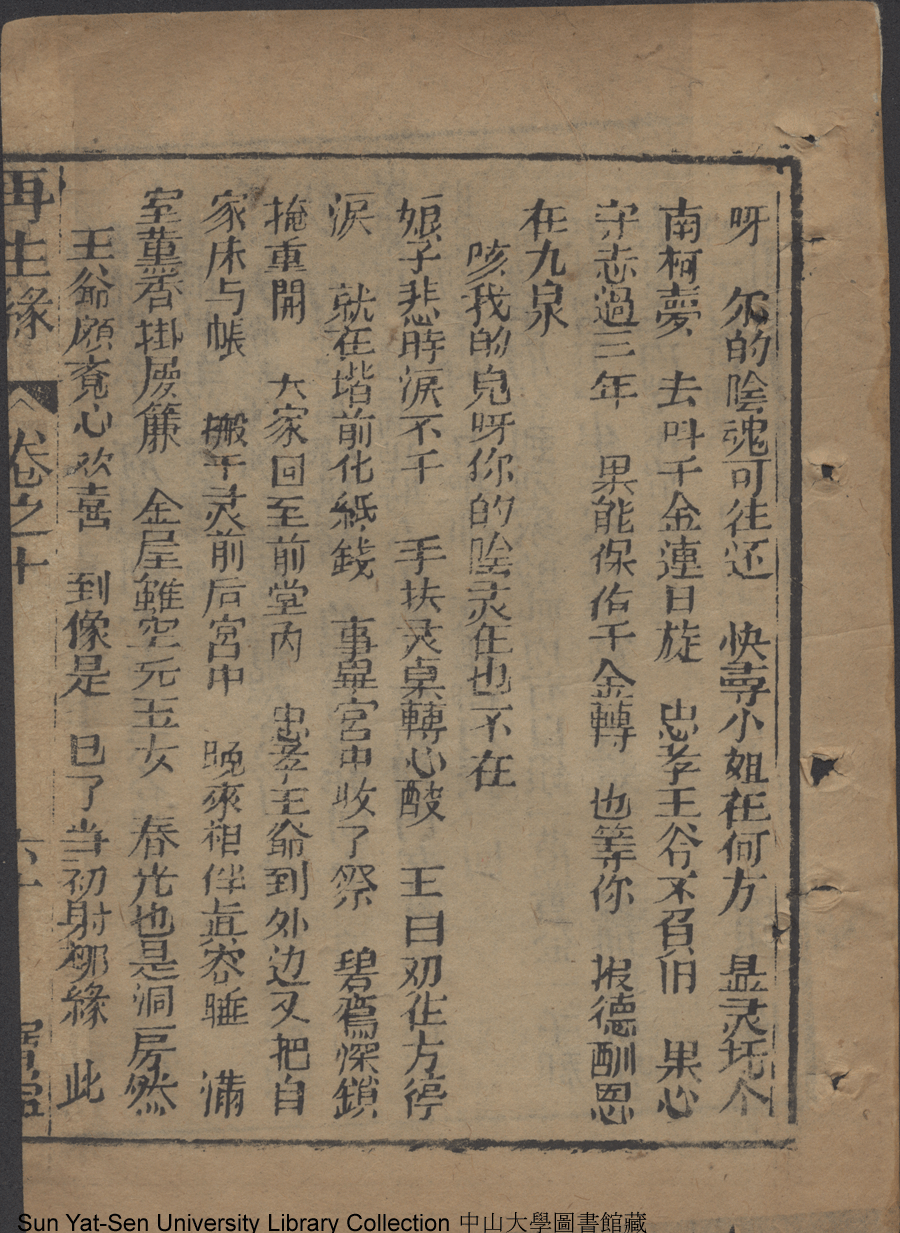 呀　尔的陰魂可往还　快尋小姐在何方　显灵托个
南柯夢　去叫千金連日旋　忠孝王爷不負旧　果心
守志過三年　果能保佑千金轉　也等你　报德酧恩
在九泉
咳我的兒呀你的陰灵在也不在
娘子悲時淚不千　手扶灵桌轉心酸　王曰劝住方停
淚　就在堦前化紙錢　事畢宮中收了祭　碧窗深鎖
掩重開　大家回至前堂內　忠孝王爺到外边又把自
家床与帳　搬于灵前后宮中　晚來相伴真容睡　滿
室薰香掛慶簾　金屋雖空元玉女　春光也是洞房然
王爺願竟心欢喜　到像是　已了当初射柳緣　此
再生緣　卷之十　六十
Sun Yat-Sen University Library Collection 中山大學圖書館藏